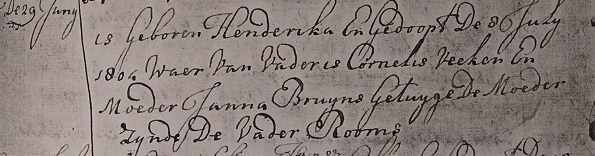 De 29 Juny
is Geboren Henderika En Gedoopt De 8 July
1804 Waer Van Vader is Cornelis Veeken En
Moeder Janna Bruyns Getuyge De Moeder
Zynde De Vader Rooms